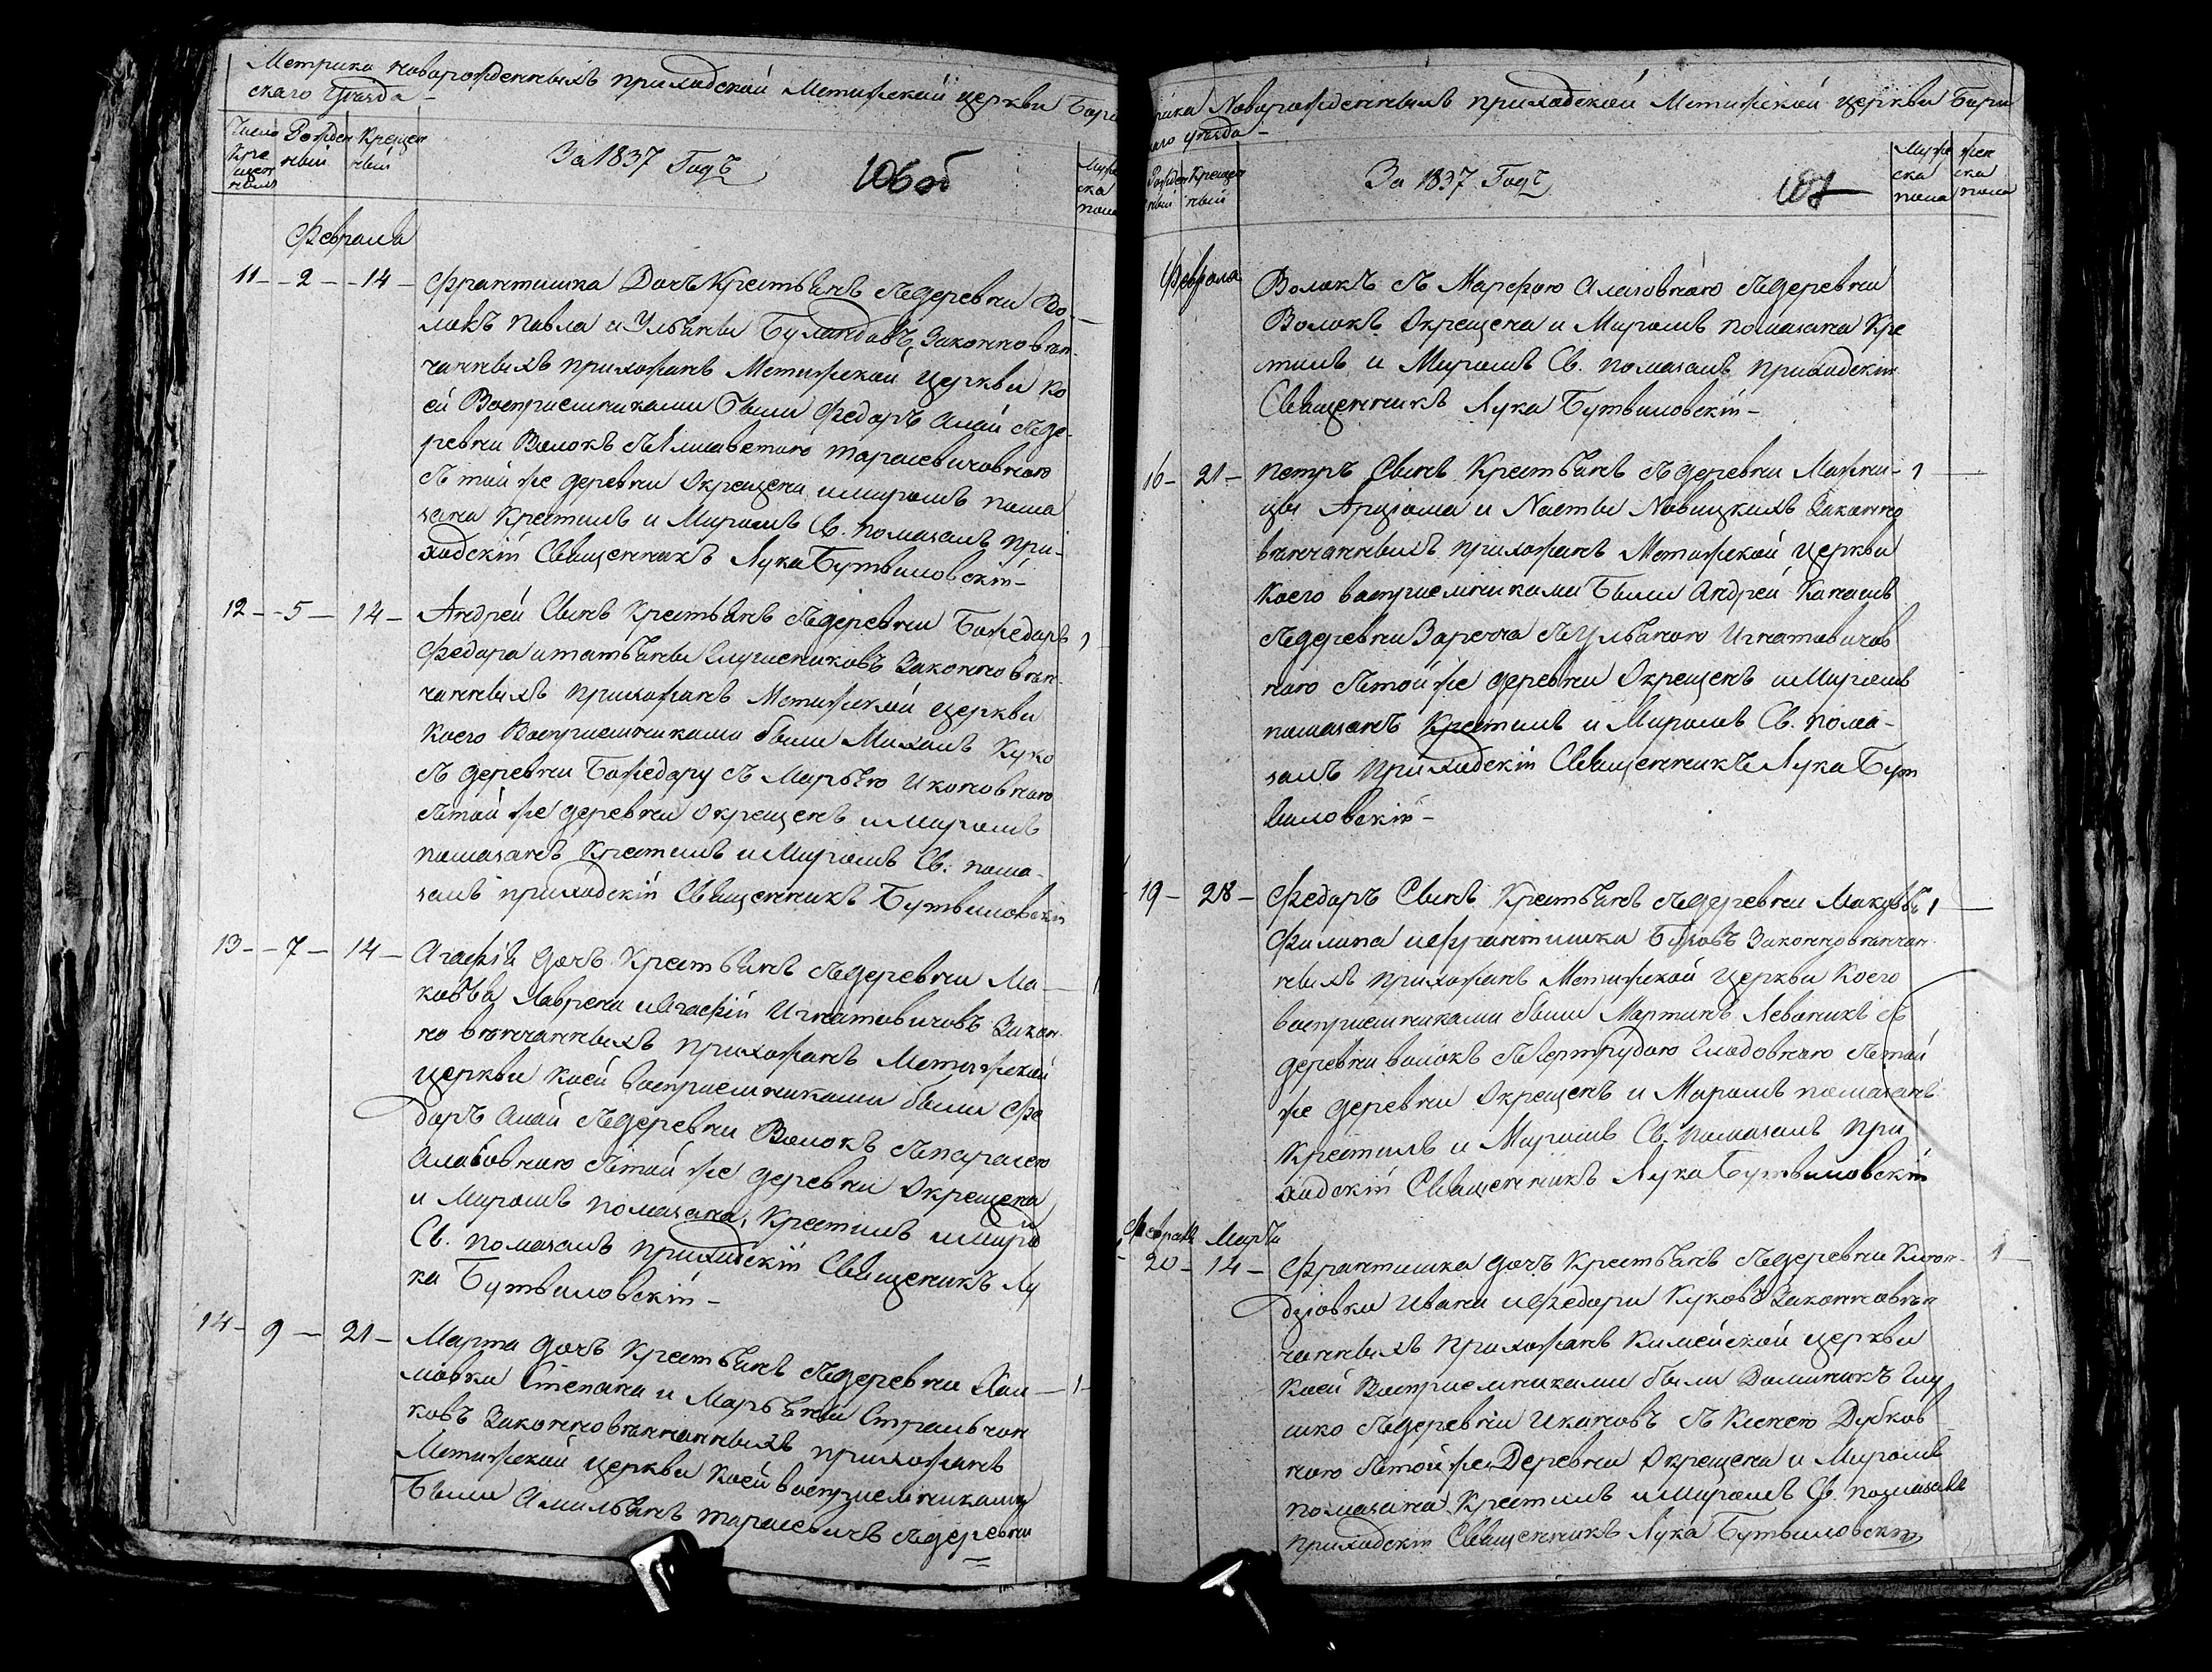 Метрика новорожденныхъ приходской Метижской церкви Бори
скаго Уезда –
Число Крещенныхъ
Рожденный
Крещенный
За 1837 Годъ
106 об
Мужеска пола
Февраля
11 – 2 – 14 – Франтишка Дочъ Крестьянъ съ деревни Во-
локъ Павла и Ульяны Буландовъ Законновен-
чанныхъ прихожанъ Метижской церкви ко
ей Восприемниками были Федоръ Алай съ де-
ревни Волокъ съ Елисаветою Тарасевичовною
съ тай же деревни Окрещена и Миромъ пома
зана Крестилъ и Миромъ Св. помазалъ при-
ходскій Священникъ Лука Бутвиловскій –
12 – 5 – 14 – Андрей Сынъ Крестьянъ съ деревни Божедаръ 1
Федора и татьяны Законновен-
чанныхъ прихожанъ Метижской церкви
Коего Восприемниками были Михаилъ Куко
съ деревни Божедару съ Марьею Иконовною
съ тай же деревни окрещенъ и Миромъ
помазанъ Крестилъ и Миромъ Св. пома-
залъ приходскій Священникъ Бутвиловскій
13 – 7 – 14 – Агафія дочъ Крестьянъ съ деревни Ма-
ковья Лаврена и Агафіи Игнатовичовъ Закон-
но венчанныхъ прихожанъ Метижской
церкви Коей восприемниками были Фе
доръ Алай съ деревни Волокъ съ Парасею
съ тай же деревни Окрещена
и Миромъ помазана, Крестилъ и Миро
Св. помазалъ приходскій Священикъ Лу
ка Бутвиловскій –
14 – 9 – 21 – Марта дочъ Крестьянъ съ деревни Хал – 1 –
мовки Степана и Марьяны Стральчон
ковъ Законновенчанныхъ прихожанъ
Метижской церкви Коей восприемниками
Были Амильянъ тарасевичъ съ деревни
Новорожденныхъ приходской Метижской церкви Бори
уезда –
Рожденный
Крещенный
За 1837 Годъ
107
Мужеска пола
женска пола
Февраля
Волокъ съ Марфою Алаювною съ деревни
Волокъ Окрещена и Миромъ помазана Кре
стилъ и Миромъ Св. помазалъ приходскій
Священникъ Лука Бутвиловскій –
16 – 21 – Петръ Сынъ Крестьянъ съ деревни Мажни- 1
цы Арціома и Насты Новицкихъ Законно
венчанныхъ прихожанъ Метижской церкви
Коего восприемниками Были Андрей Канашъ
съ деревни Заречча съ Ульяною Игнатовичов
ною съ той же деревни Окрещенъ и Миромъ
помазанъ Крестилъ и Миромъ Св. пома-
залъ приходскій Священникъ Лука Бут
виловскій –
19 – 28 – Федоръ Сынъ Крестьянъ съ деревни Маковье 1
Филипа и Франтишки Законновенчан-
ныхъ прихожанъ Метижской церкви Коего
восприемниками были Мартинъ Леваникъ съ
деревни волокъ съ Гертрудою съ тай
же деревни Окрещенъ и Миромъ помазанъ
Крестилъ и Миромъ Св. помазалъ При
ходскій Священникъ Лука Бутвиловскій
Февраля Марта
20 – 14 – Франтишка дочъ Крестьянъ съ деревни Клюн- 1 –
дзіовки Ивана и Федоры Куковъ Законновен
чанныхъ прихожанъ Кимейской церкви
Коей Восприемниками были Доминикъ Глу
шко съ деревни Икановъ съ Дубков
ною съ той же Деревни Окрещена и Миромъ
помазана Крестилъ и Миромъ Св. помазалъ
приходскій Священникъ Лука Бутвиловскій